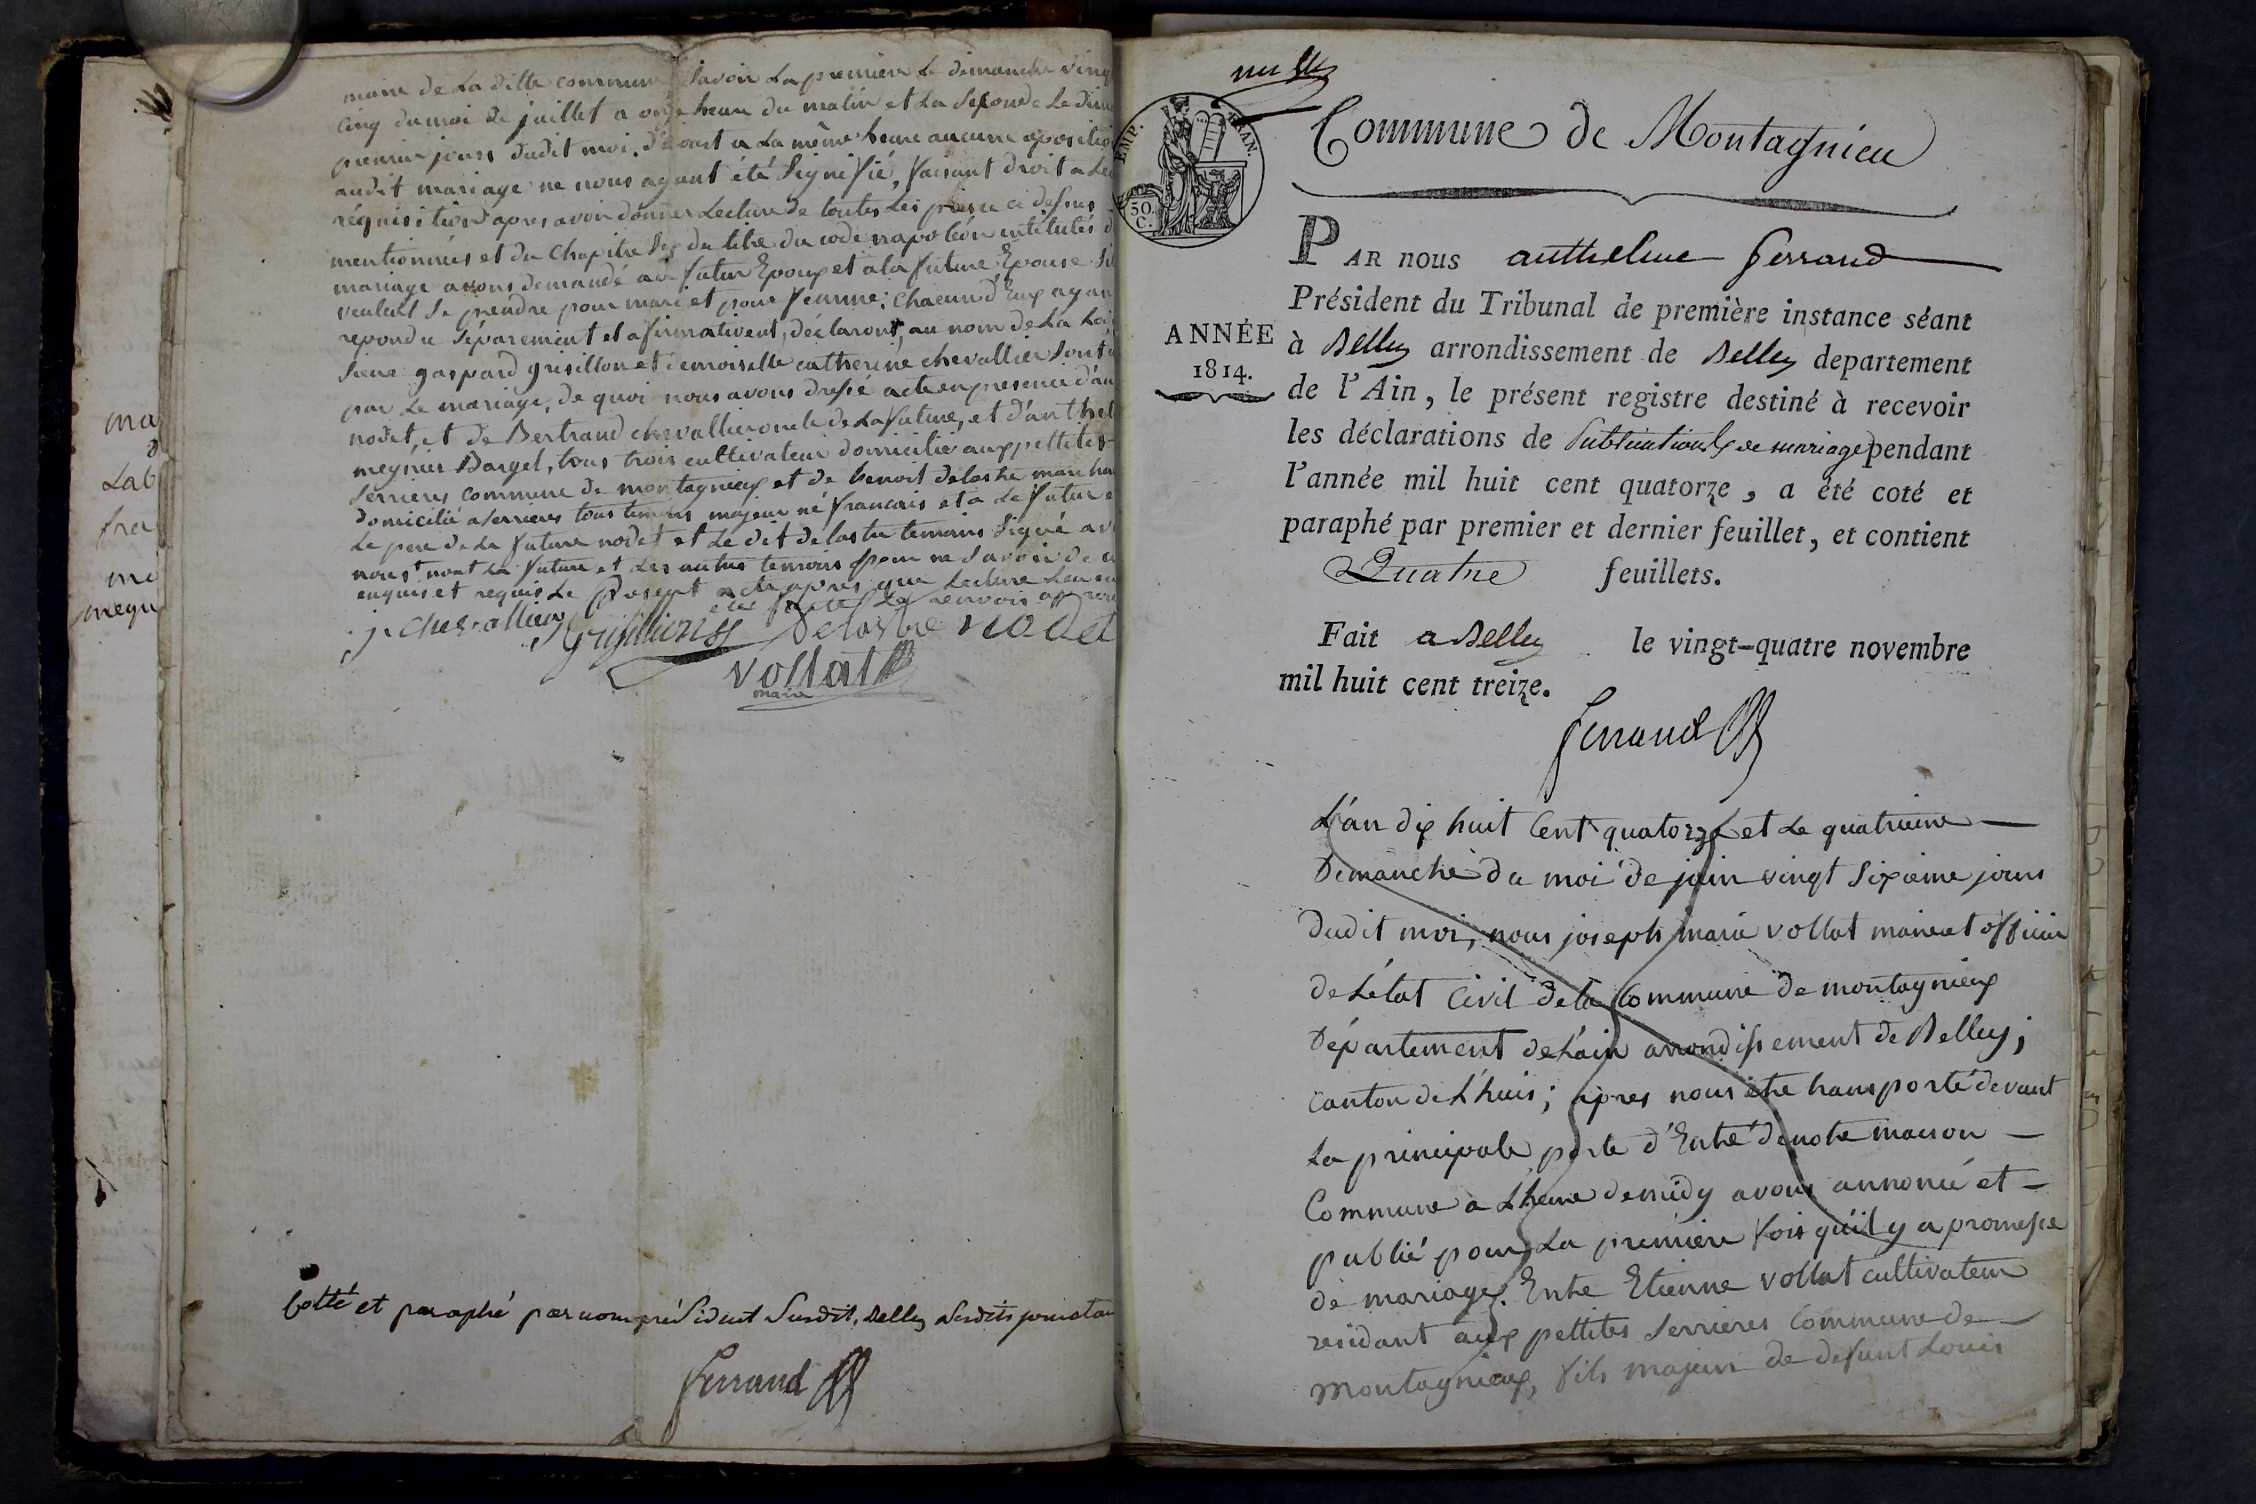 maire de la ditte commune Savoir La premiere Le dimanche ving
Cinq du moi de juillet a onze heure du matin et La Seconde Le dim
premier jours dudit moi d'aout a La même heure aucune opositio
audit mariage ne nous ayant été Signifié, faisant droit a Leu
réquisition apres avoir donner Lecture de toutes Les piece ci dessus
mentionnées et du Chapitre Six du titre du code napoléon intitulés d
mariage avons demandé au futur Epoux et a la future Epouse Si
veulent Se prendre pour mari et pour femme; chacun d'Eux ayan
repondu Séparement et afirmativent, déclarons, au nom de La Loi
Sieur gaspard grisillon et demoiselle catherine chevallier Sont u
par Le mariage, de quoi nous avons dressé acte en presence d'an
nodet, et de Bertrand chevallier oncle de La future, et d'anthel
megnier Dargel, tous trois cultivateur domicilié aux pettites
Serrieres commune de montagnieux et de benoit delastre marchan
domicilié a Serrieres tous temoins majeur né francais et a Le futur e
Le pere de La future nodet et Le dit delastre temoins Signé av
nous nont La future et Les autres temoins pour ne Savoir de c
enquis et requis Le present acte apres que Lecture Leur en
a été faite Les renvois aprou
j. chevallier grisillion Delastre nodet
vollat
maire
Cotté et paraphé par nous président Susdit, Belley Lesdits jour et an
Ferrand
ma
Lab
fra
me
megn
EMP. FRAN.
50.
C.
Commune de Montagnieu
PAR nous anthelme ferrand
Président du Tribunal de première instance séant
à Belley arrondissement de Belley departement
ANNÉE
1814.
de l'Ain, le présent registre destiné à recevoir
les déclarations de Publications de mariage pendant
l'année mil huit cent quatorze, a été coté et
paraphé par premier et dernier feuillet, et contient
Quatre feuillets.
Fait a Belley le vingt-quatre novembre
mil huit cent treize.
ferrand
L'an dix huit Cent quatorze et Le quatrieme
Dimanche du moi de juin vingt Sixieme jours
dudit moi, nous joseph marie vollat maire et officier
de L'état Civil de la Commune de montagnieux
Département de L'ain arrondissement de Belley;
Canton de L'huis; apres nous etre transporté devant
La principale porte d'Entré de notre maison
Commune a L'heure de midy avons annoncé et
publié pour La premiere fois qu'il y a promesse
de mariage. Entre Etienne vollat cultivateur
residant aux pettites Serrieres Commune de
montagnieux, fils majeur de defunt Louis